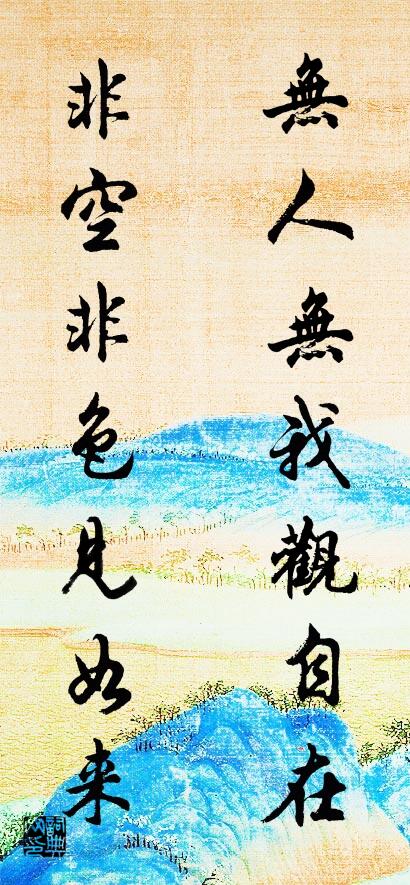 無人無我觀自在
非空非色見如来